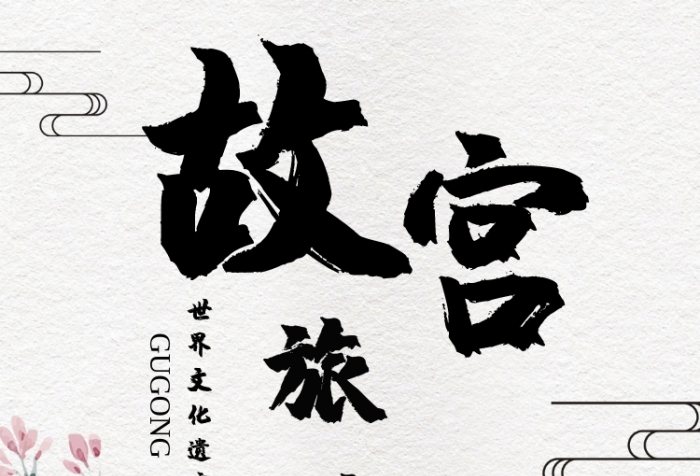 故宫
旅
世界文化遺
GUGONG